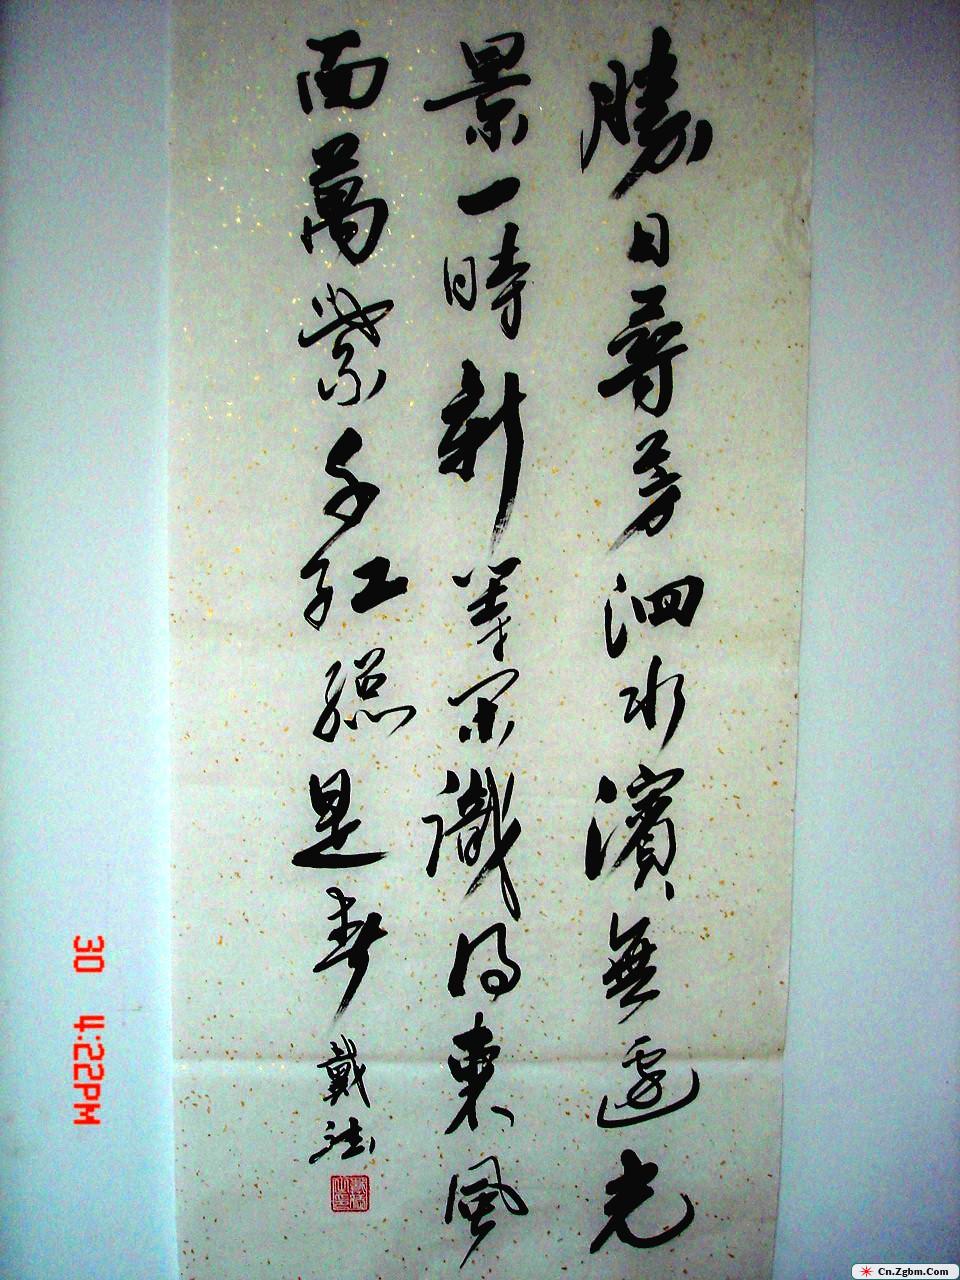 勝日尋芳泗水濱無邊光
景一時新等閑識得東風
面萬紫千紅總是春
戴
30 4:22PM
Cn.Zgbm.Com